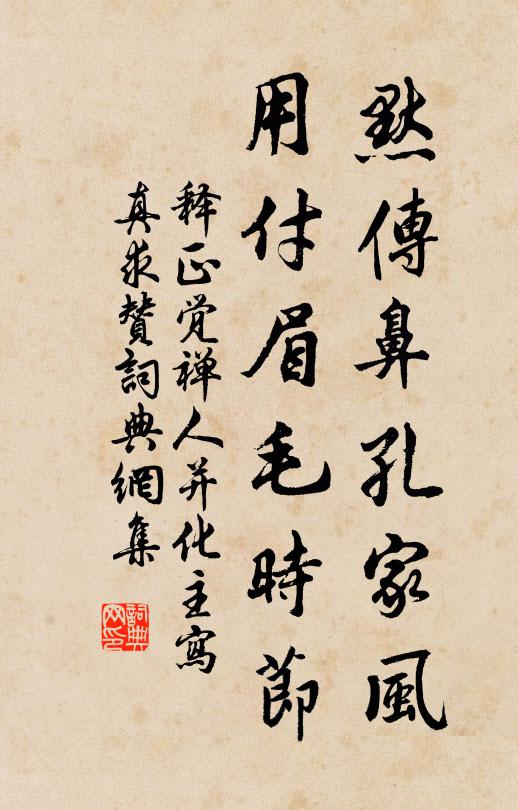 默傳鼻孔家風
用付眉毛時節
释正觉禅人并化主寫
真求贊詞典網集
詞典网印